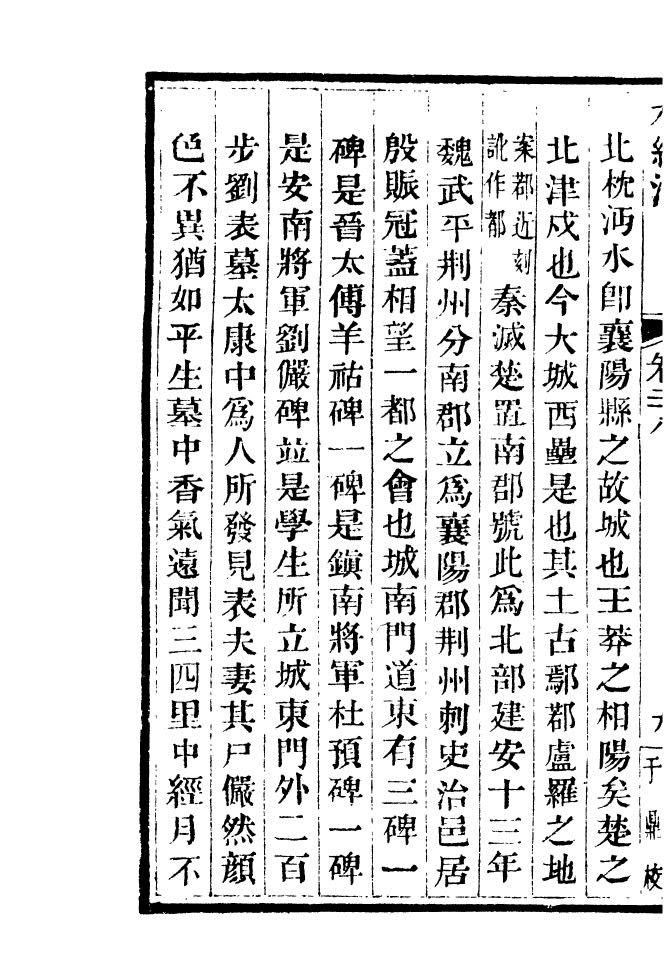 水經注 卷二八
北枕沔水卽襄陽縣之故城也王莽之相陽矣楚之
北津戍也今大城西壘是也其土古鄢鄀盧羅之地
案鄀近刻
訛作都
秦滅楚置南郡號此爲北部建安十三年
魏武平荆州分南郡立爲襄陽郡荆州刺史治邑居
殷賑冠蓋相望一都之會也城南門道東有三碑一
碑是晉太傅羊祜碑一碑是鎭南將軍杜預碑一碑
是安南將軍劉儼碑竝是學生所立城東門外二百
步劉表墓太康中爲人所發見表夫妻其尸儼然顏
色不異猶如平生墓中香氣遠聞三四里中經月不